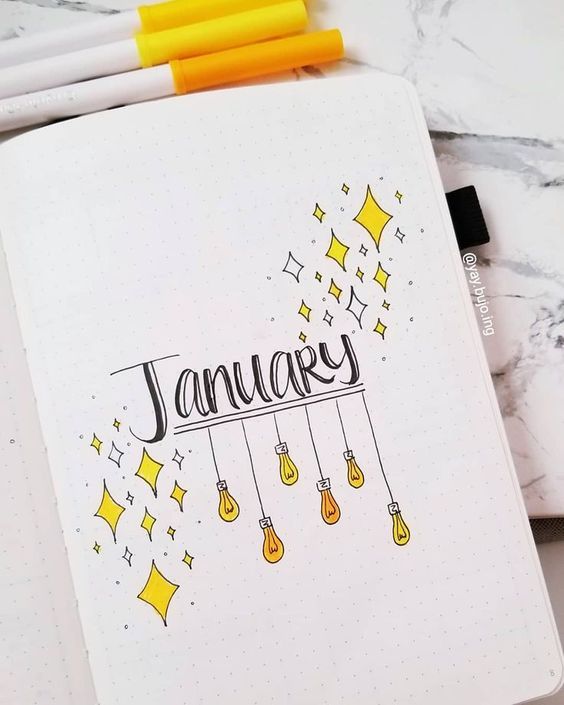 January
@yay.bujo.ing
8